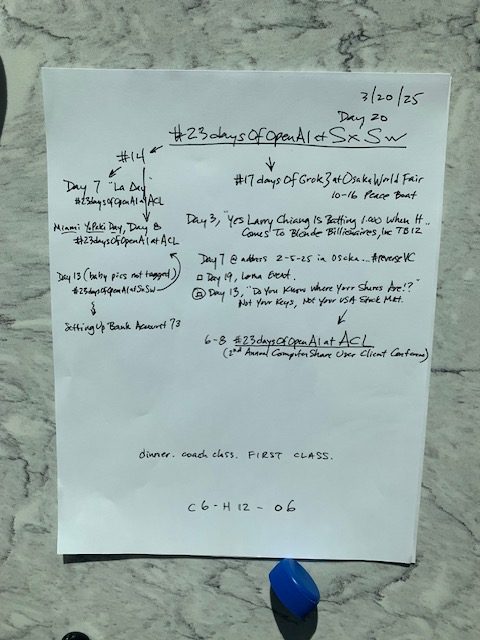 3/20/25
Day 20
#23daysOfOpenAI at SxSw
#14
Day 7 "La Day"
#23daysOfOpenAI at ACL
Miami YaPoki Day, Day 8
#23daysOfOpenAI at ACL
Day 13 (baby pics not tagged)
#23daysOfOpenAI at SxSw
Setting Up Bank Account 73
#17 days Of Grok3 at Osaka World Fair
10-16 Peace Boat
Day 3, "Yes Larry Chiang Is Batting 1.000 When It..
Comes To Blonde Billionaires, Inc TB12
Day 7 @ address 2-5-25 in Osaka.. #reverseVC
Day 19, Event.
Day 13, "Do You Know Where Your Shares Are!?"
Not Your Keys, Not Your USA Stock Mkt.
6-8 #23daysOfOpenAI at ACL
(2nd Annual ComputerShare User Client Conference)
dinner. coach class. FIRST CLASS.
C6-H12-O6